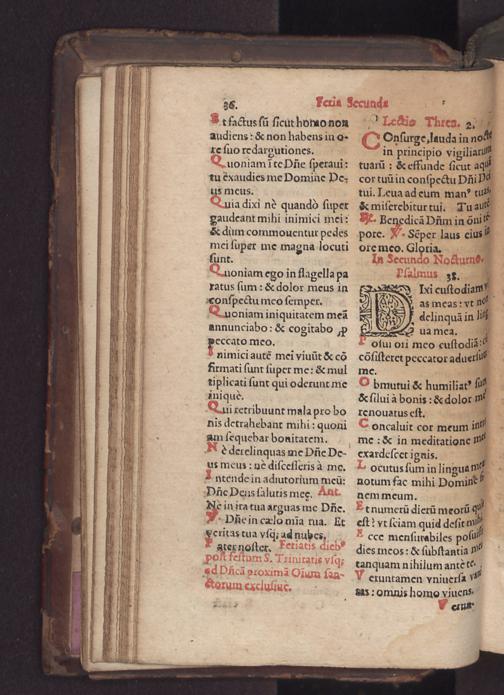 36. Feria Secunda
Et factus sũ sicut homo non
audiens: & non habens in o-
re suo redargutiones.
Quoniam ĩ te Dñe speraui:
tu exaudies me Domine De-
us meus.
Quia dixi nè quandò super
gaudeant mihi inimici mei:
& dum commouentur pedes
mei super me magna locuti
sunt.
Quoniam ego in flagella pa
ratus sum: & dolor meus in
conspectu meo semper.
Quoniam iniquitatem meã
annunciabo: & cogitabo ꝓ
peccato meo.
Inimici autẽ mei viuũt & cõ
firmati sunt super me: & mul
tiplicati sunt qui oderunt me
iniquè.
Qui retribuunt mala pro bo
nis detrahebant mihi: quoni
am sequebar bonitatem.
Nè derelinquas me Dñe De-
us meus: nè discesseris à me.
Intende in adiutorium meũ:
Dñe Deus salutis meę. Ant.
Ne in ira tua arguas me Dñe.
℣. Dñe in cælo mĩa tua. Et
veritas tua vsq; ad nubes.
Pater noster. Feriatis dieb⁹
post festum S. Trinitatis vsq;
ad Dñcã proximã Oĩum san-
ctorum exclusiuè.
Lectio Thren. 2.
COnsurge, lauda in nocte
in principio vigiliarum
tuarũ: & effunde sicut aquã
cor tuũ in conspectu Dñi Dei
tui. Leua ad eum man⁹ tuas,
& miserebitur tui. Tu autẽ
℟. Benedicã Dñm in õni tẽ-
pore. ℣. Sẽper laus eius in
ore meo. Gloria.
In Secundo Nocturno.
Psalmus 38.
DIxi custodiam v
as meas: vt non
delinquã in ling
ua mea.
Posui ori meo custodiã: cũ
cõsisteret peccator aduersus
me.
Obmutui & humiliat⁹ sum
& silui à bonis: & dolor me⁹
renouatus est.
Concaluit cor meum intra
me: & in meditatione mea
exardescet ignis.
Locutus sum in lingua mea
notum fac mihi Domine fi-
nem meum.
Et numerũ dierũ meorũ quis
est? vt sciam quid desit mihi.
Ecce mensurabiles posuisti
dies meos: & substantia mea
tanquam nihilum antè te.
Veruntamen vniuersa vani
tas: omnis homo viuens.
Verun-